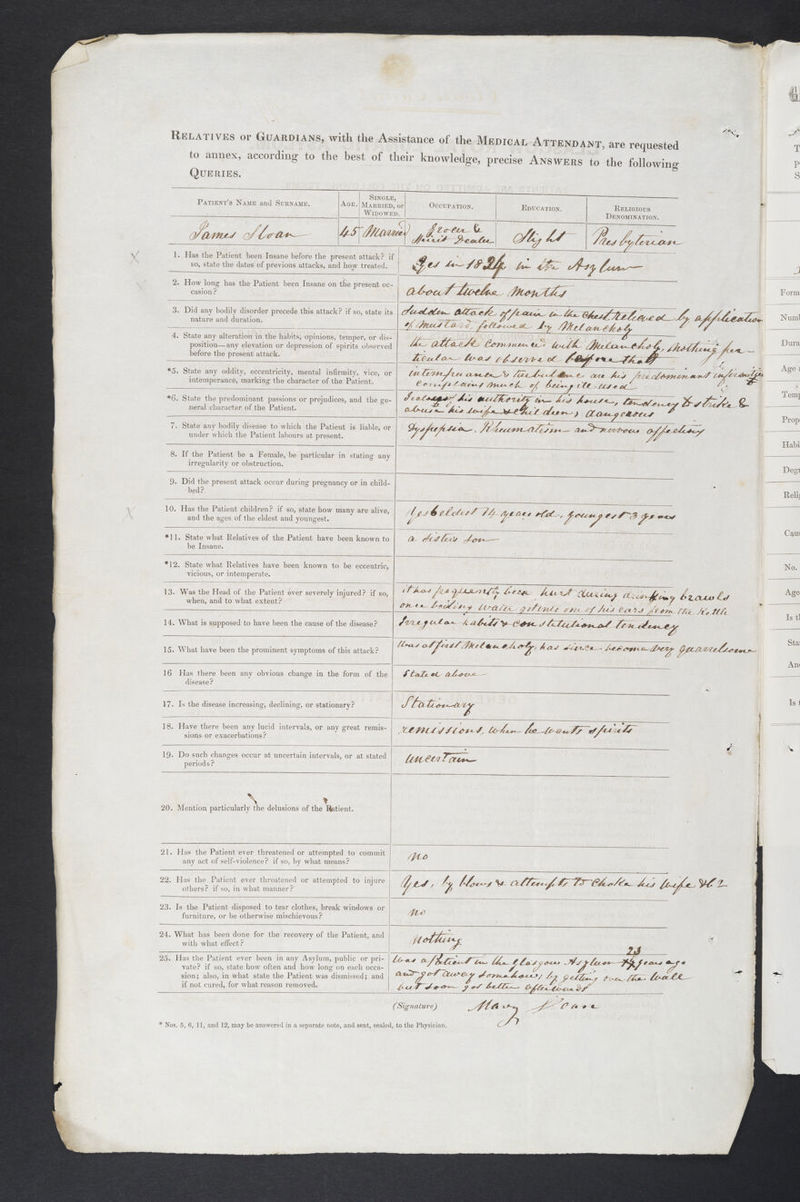 RELATIVES or GUARDIANS, with the Assistance of the MEDICAL ATTENDANT, are requested
to annex, according to the best of their knowledge, precise ANSWERS to the following
QUERIES.
PATIENT'S NAME and SURNAME.
AGE.
SINGLE,
MARRIED, or
WIDOWED.
OCCUPATION.
EDUCATION.
RELIGIOUS
DENOMINATION.
James Sloan
45
Married
Grocer &
Spirit Dealer
Slight
Presbyterian
1. Has the Patient been Insane before the present attack? if
so, state the dates of previous attacks, and how treated.
Yes in 1824 in the Asylum
2. How long has the Patient been Insane on the present oc-
casion?
about twelve months
3. Did any bodily disorder precede this attack? if so, state its
nature and duration.
Sudden attack of pain in the chest relieved by application
of mustard, followed by Melancholy
4. State any alteration in the habits, opinions, temper, or dis-
position—any elevation or depression of spirits observed
before the present attack.
the attack commenced with Melancholy, nothing par-
ticular was observed before that
*5. State any oddity, eccentricity, mental infirmity, vice, or
intemperance, marking the character of the Patient.
intemperance & turbulence are his predominant
complains much of being ill used
*6. State the predominant passions or prejudices, and the ge-
neral character of the Patient.
Jealous of his authority in his house, tendency to strike &
abuse his wife & children, dangerous
7. State any bodily disease to which the Patient is liable, or
under which the Patient labours at present.
Dyspepsia. Rheumatism and nervous affections
8. If the Patient be a Female, be particular in stating any
irregularity or obstruction.
9. Did the present attack occur during pregnancy or in child-
bed?
10. Has the Patient children? if so, state how many are alive,
and the ages of the eldest and youngest.
Yes 6 eldest 14 years old, youngest 3 years
*11. State what Relatives of the Patient have been known to
be Insane.
a sisters son
*12. State what Relatives have been known to be eccentric,
vicious, or intemperate.
13. Was the Head of the Patient ever severely injured? if so,
when, and to what extent?
it has frequently been hurt during drunken brawls
once boiling water got into one of his ears from the Kettle
14. What is supposed to have been the cause of the disease?
Irregular habits & constitutional tendency
15. What have been the prominent symptoms of this attack?
Was at first Melancholy, has since become very quarrelsome
16 Has there been any obvious change in the form of the
disease?
Stated above
17. Is the disease increasing, declining, or stationary?
Stationary
18. Have there been any lucid intervals, or any great remis-
sions or exacerbations?
remissions, when he wants spirits
19. Do such changes occur at uncertain intervals, or at stated
periods?
uncertain
20. Mention particularly the delusions of the Patient.
21. Has the Patient ever threatened or attempted to commit
any act of self-violence? if so, by what means?
no
22. Has the Patient ever threatened or attempted to injure
others? if so, in what manner?
Yes, by blows & attempts to choke his wife
23. Is the Patient disposed to tear clothes, break windows or
furniture, or be otherwise mischievous?
no
24. What has been done for the recovery of the Patient, and
with what effect?
Nothing
25. Has the Patient ever been in any Asylum, public or pri-
vate? if so, state how often and how long on each occa-
sion; also, in what state the Patient was dismissed; and
if not cured, for what reason removed.
23
Was a patient in the Glasgow Asylum years ago
and got away somehow, by getting over the wall
but soon got better afterwards
(Signature) Mary Sloan
* Nos. 5, 6, 11, and 12, may be answered in a separate note, and sent, sealed, to the Physician.
Form
Numb
Dura
Age
Temp
Prop
Habi
Degr
Reli
Caus
No.
Age
Is th
Stat
An
Is